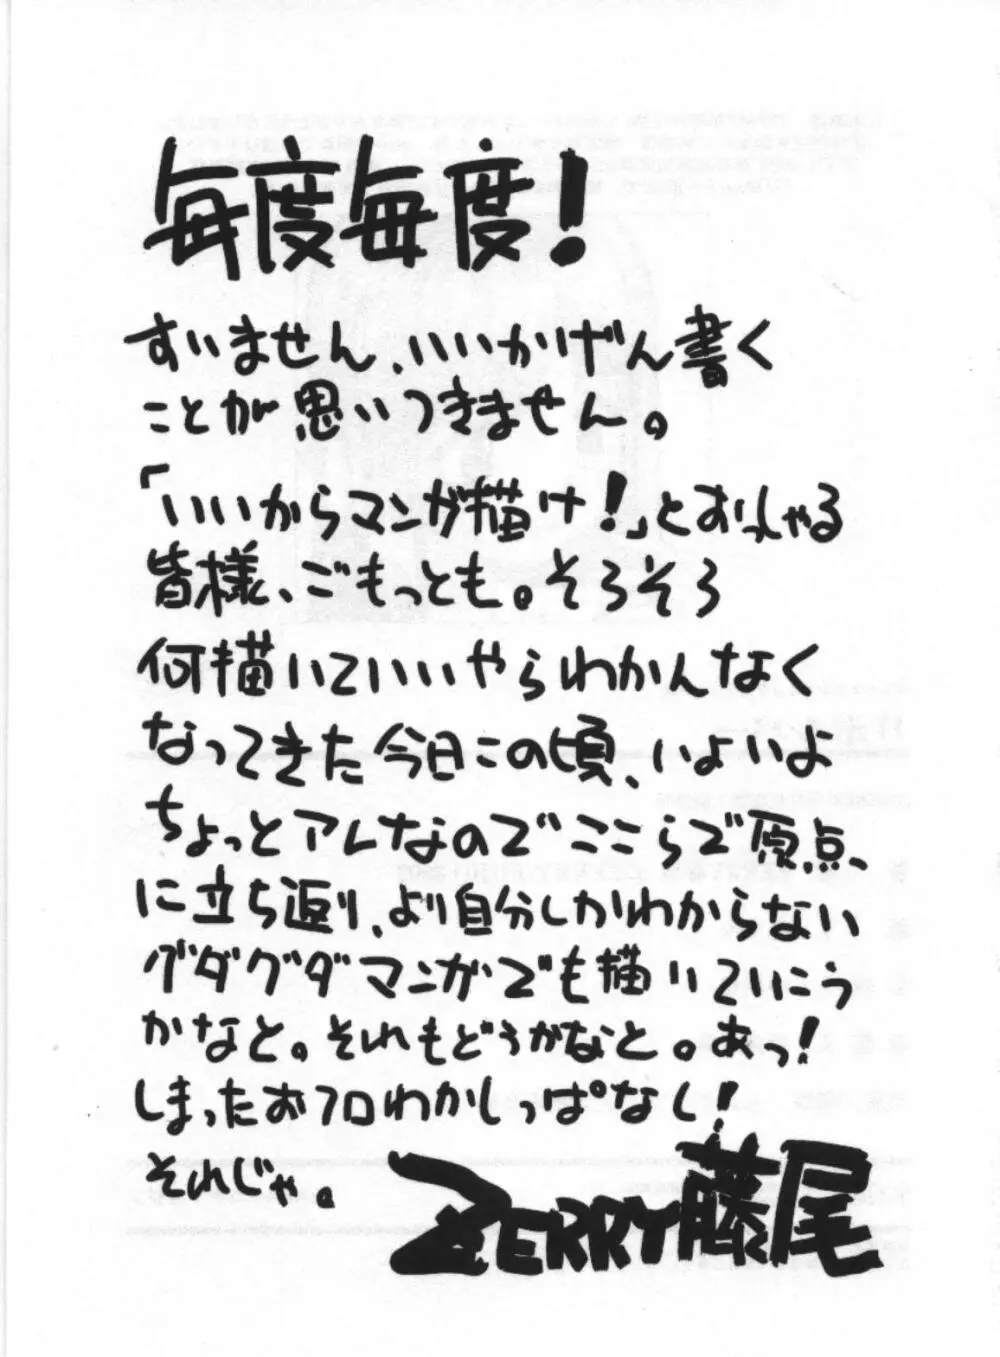 毎度毎度!
すいません、いいかげん書く
ことが思いつきません。
「いいからマンガ描け!」とおっしゃる
皆様、ごもっとも。そろそろ
何描いていいやらわかんなく
なってきた今日この頃、いよいよ
ちょっとアレなのでここらで原点
に立ち返り、より自分しかわからない
グダグダマンガでも描いていこう
かなと。それもどうかなと。あっ!
しまったおフロわかしっぱなし!
それじゃ。
ZERRY藤尾